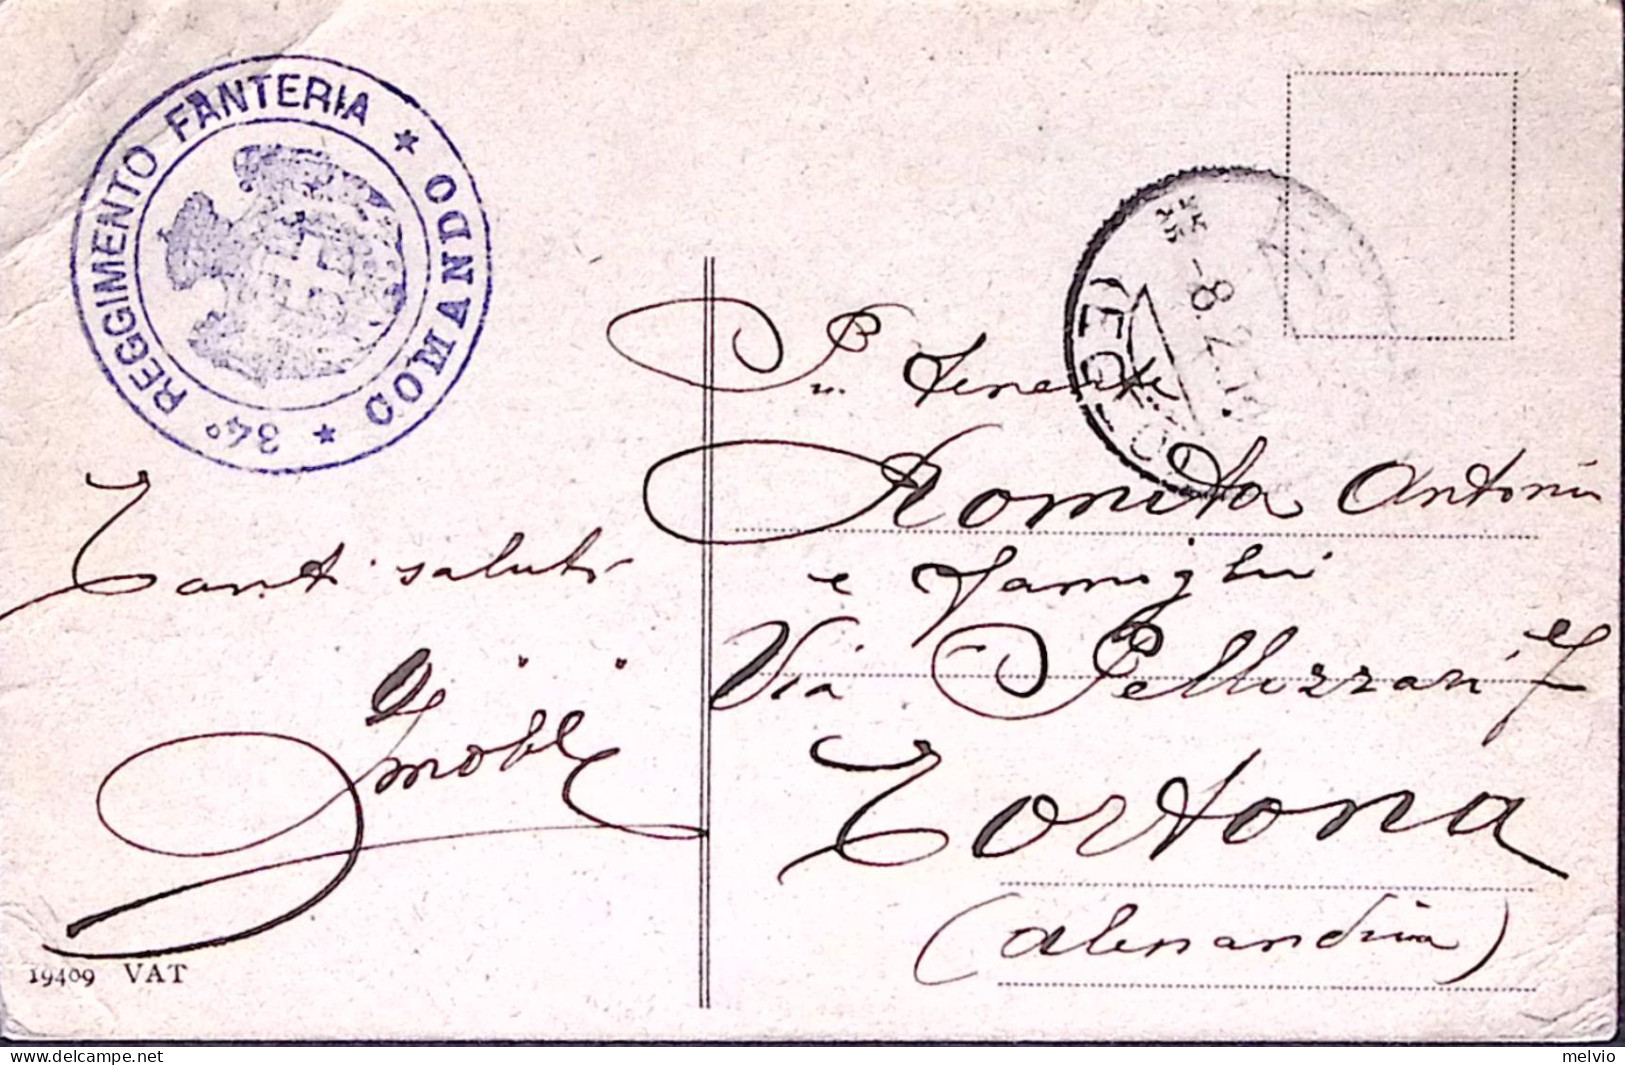 34° REGGIMENTO FANTERIA ★ COMANDO ★
Tanti saluti
19409 VAT
8.2.
Tenente
Romita Antonio
e famiglia
Via Pellizzari 7
Tortona
(Alessandria)
delcampe.net
melvio